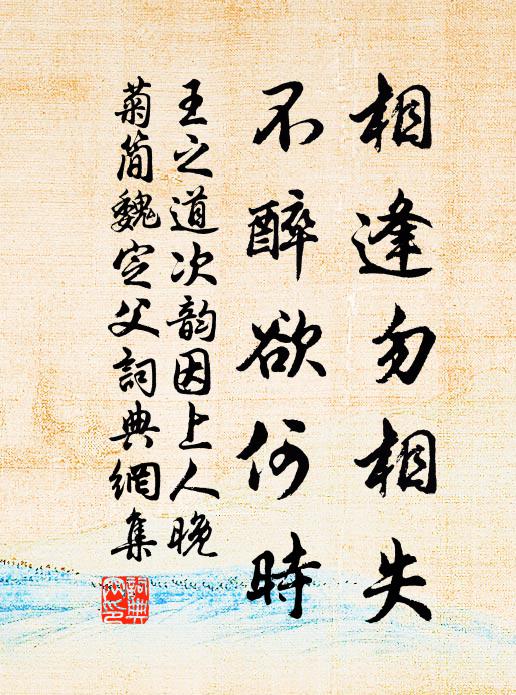 相逢勿相失
不醉欲何時
王之道次韵因上人晚
菊简魏定父詞典網集